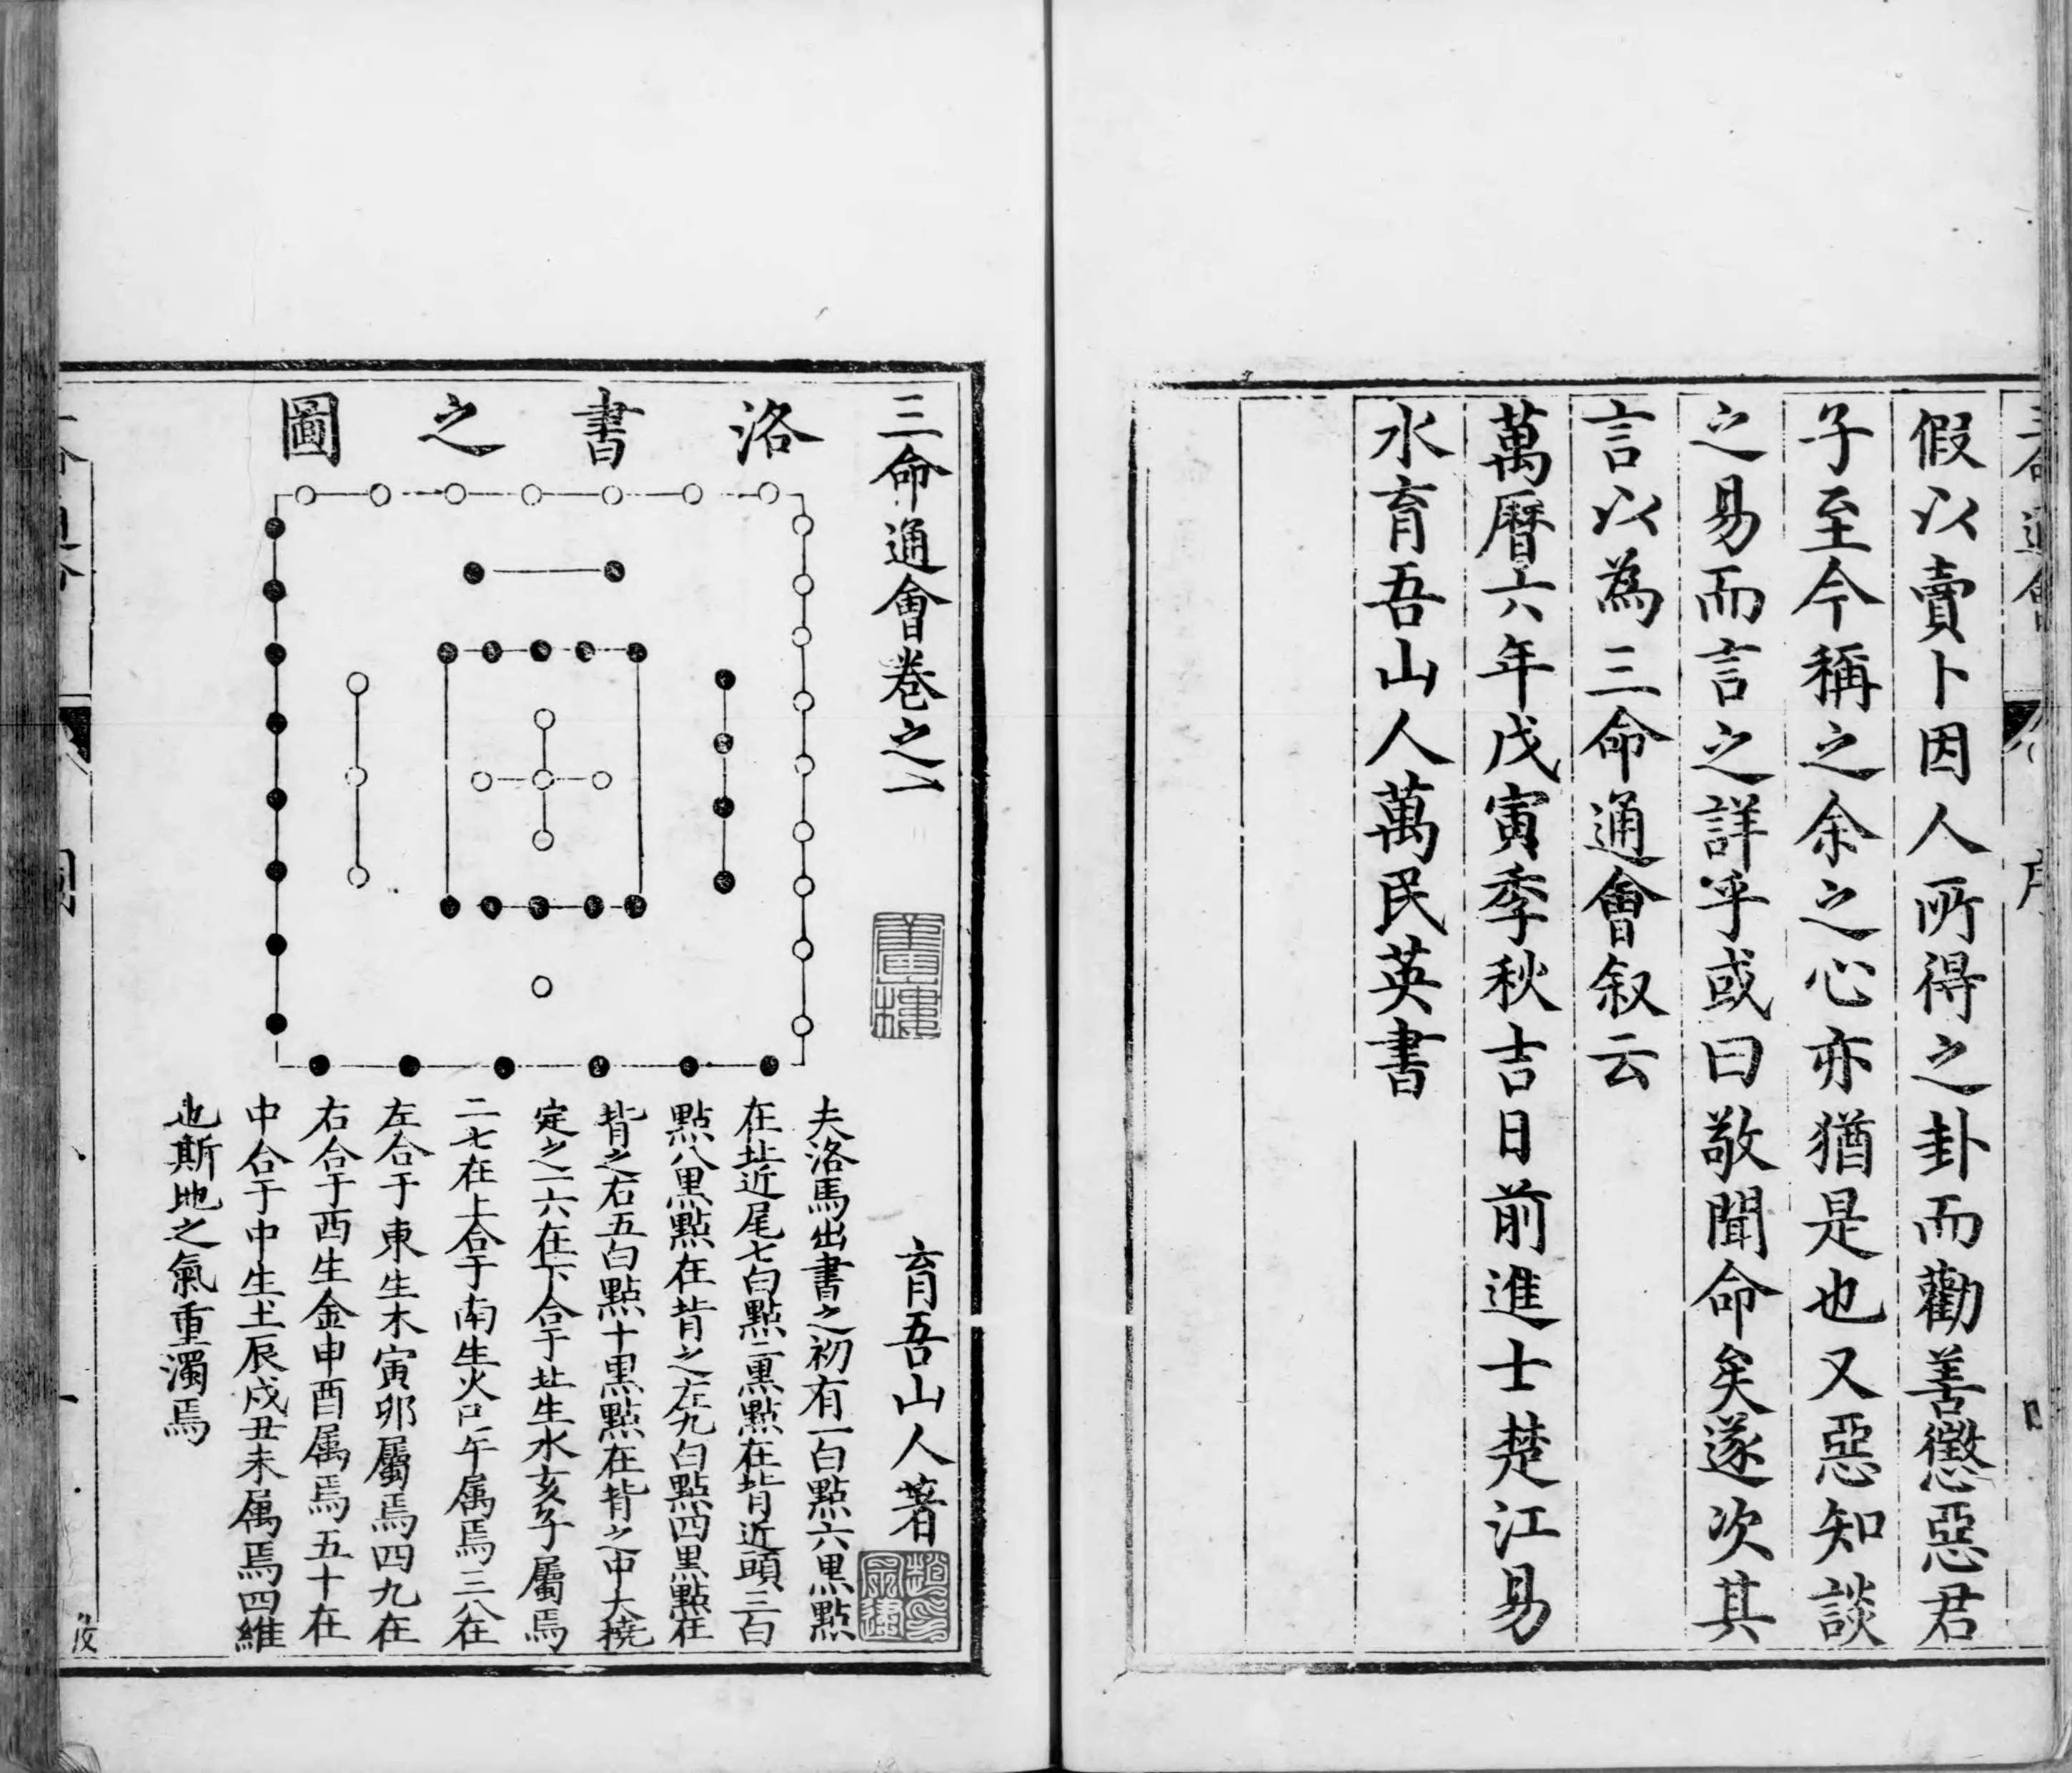 假以賣卜因人所得之卦而勸善懲惡君
子至今稱之余之心亦猶是也又惡知談
之易而言之詳乎或曰敬聞命矣遂次其
言以為三命通會叙云
萬曆六年戊寅季秋吉日前進士楚江易
水育吾山人萬民英書
三命通會卷之一
育吾山人著
洛書之圖
夫洛馬出書之初有一白點六黑點
在北近尾七白點二黑點在背近頭三百
點八黑點在背之左九白點四黑點在
背之右五白點十黑點在背之中大撓
定之一六在下合于北生水亥子屬焉
二七在上合于南生火巳午属焉三八在
左合于東生木寅卯屬焉四九在
右合于西生金申酉属焉五十在
中合于中生土辰戌丑未属焉四維
也斯地之氣重濁焉